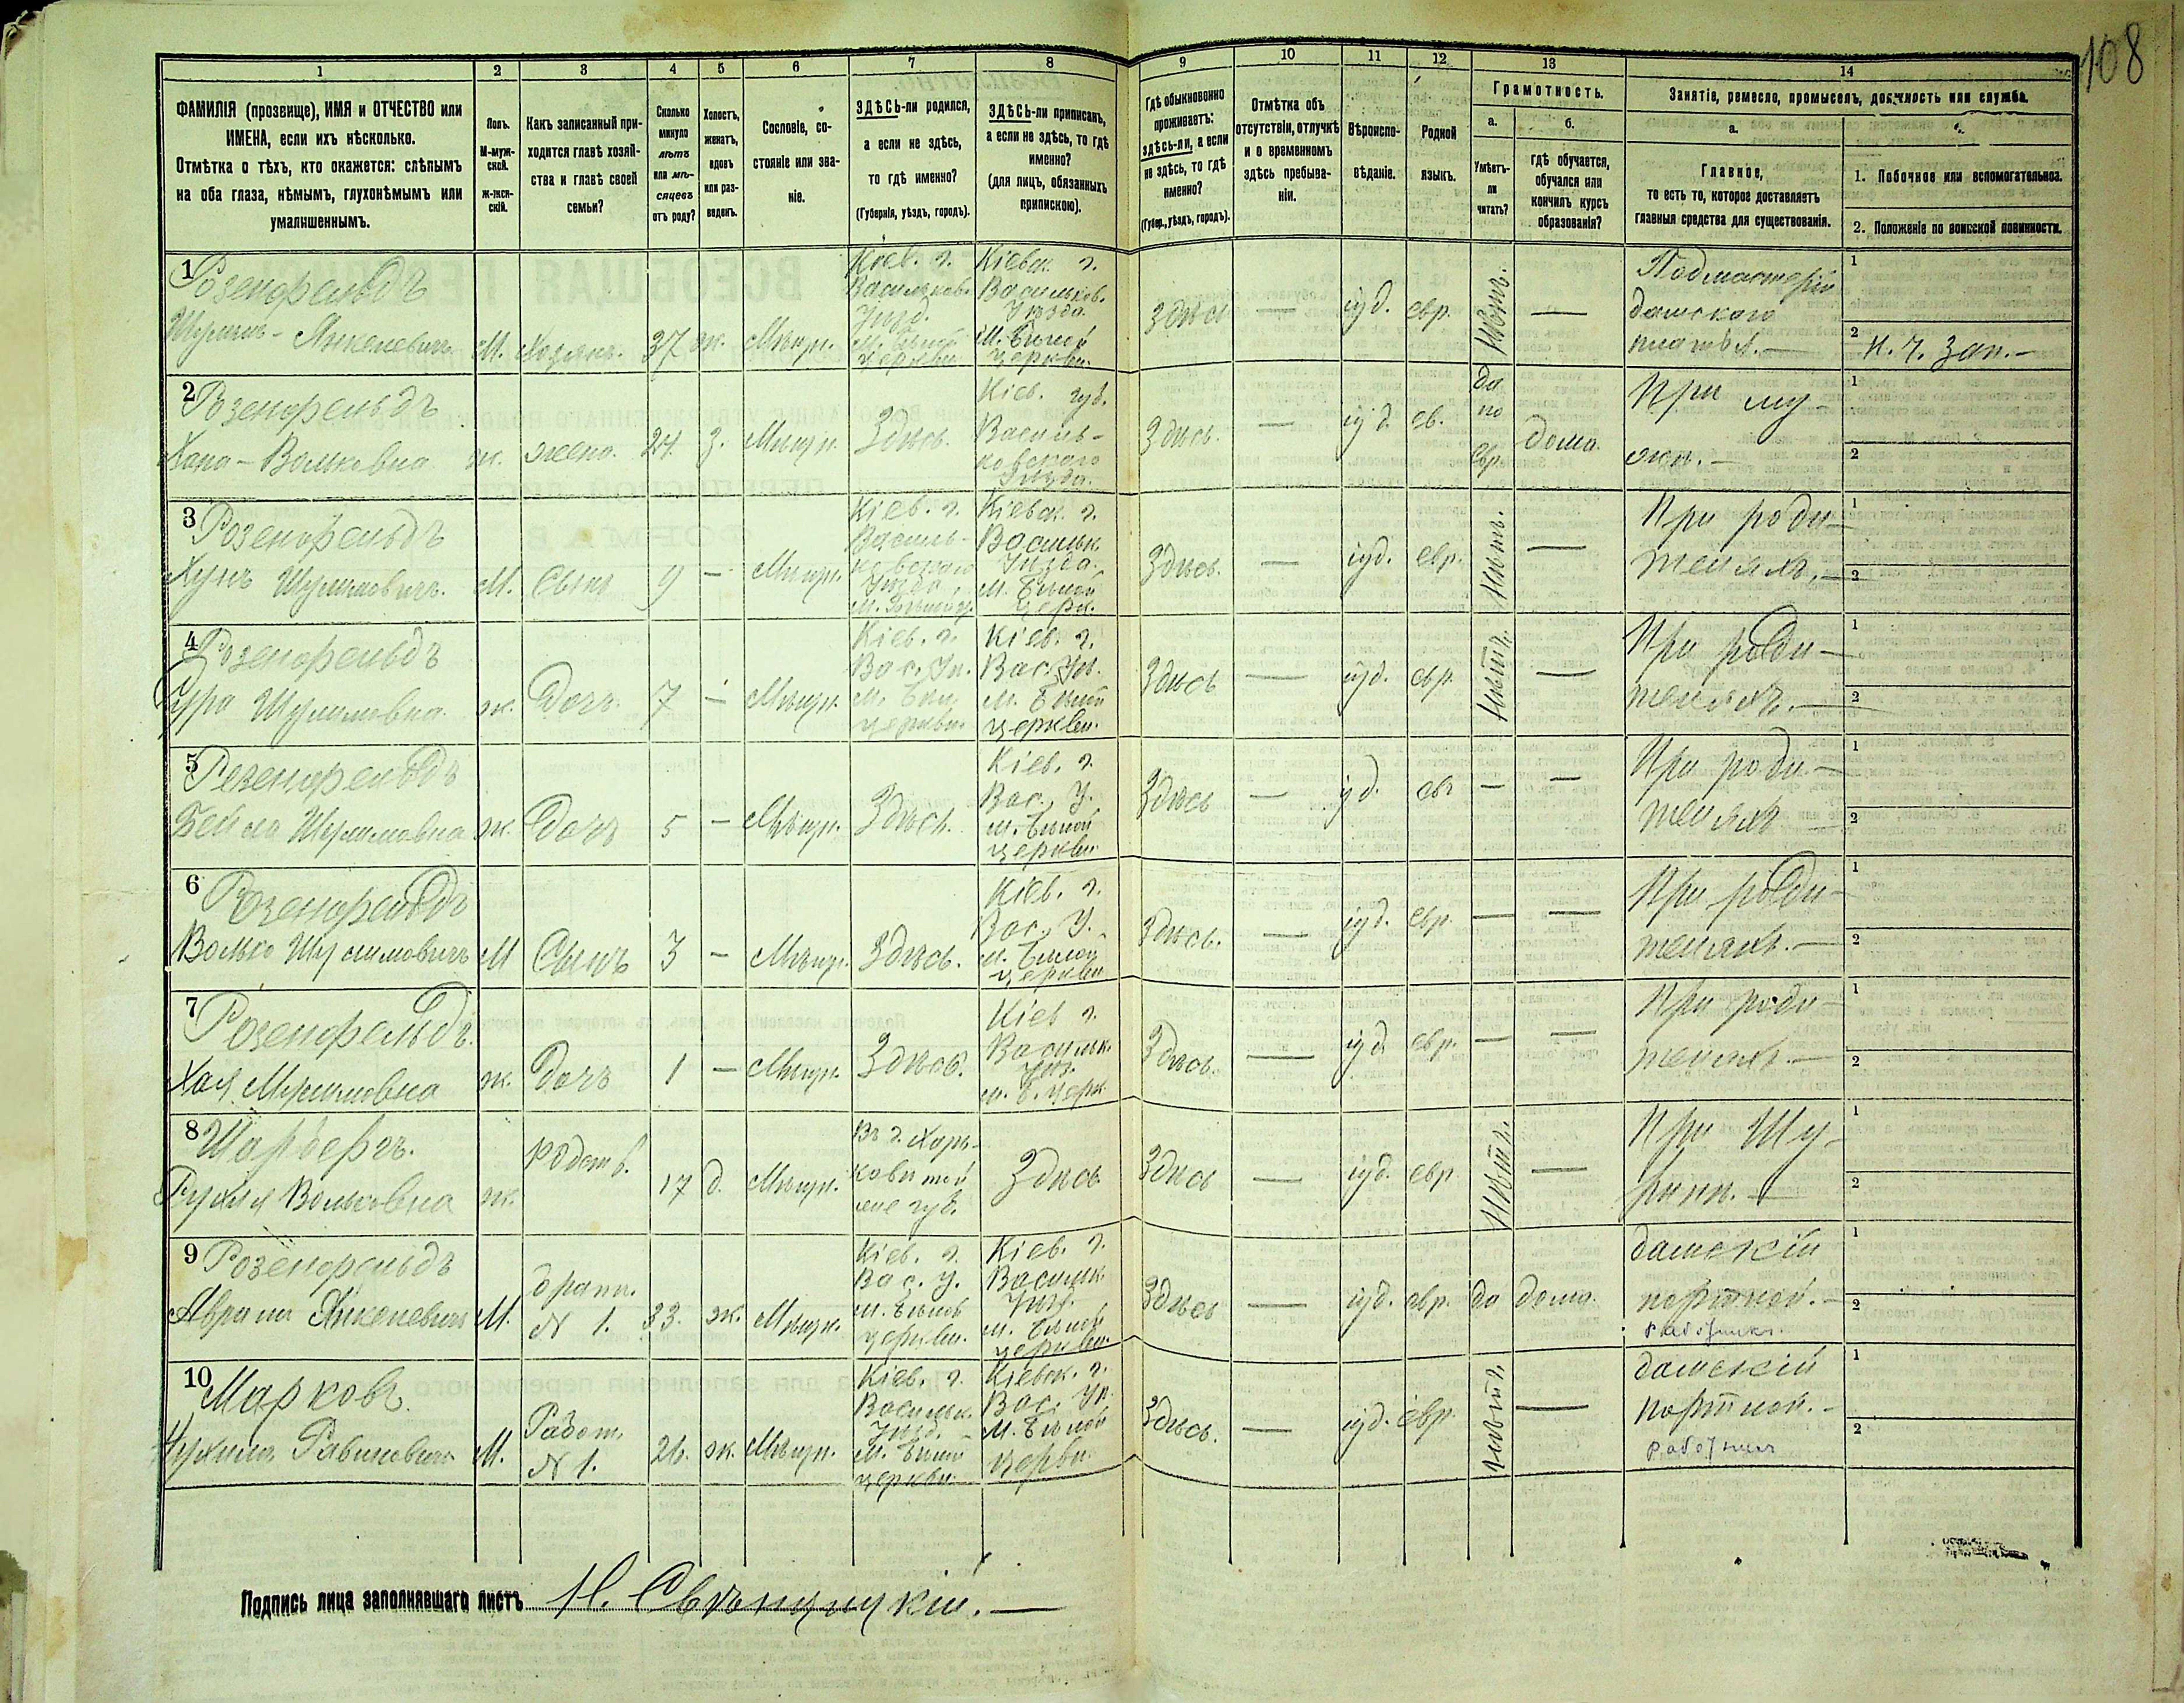 108
1 2 3 4 5 6 7 8 9 10 11 12 13 14
ФАМИЛІЯ (прозвище), ИМЯ и ОТЧЕСТВО или
ИМЕНА, если ихъ нѣсколько.
Отмѣтка о тѣхъ, кто окажется: слѣпымъ
на оба глаза, нѣмымъ, глухонѣмымъ или
умалишеннымъ.
Полъ.
М-муж-
ской.
ж-жен-
скій.
Какъ записанный при-
ходится главѣ хозяй-
ства и главѣ своей
семьи?
Сколько
минуло
лѣтъ
или мѣ-
сяцевъ
отъ роду?
Холостъ,
женатъ,
вдовъ
или раз-
веденъ.
Сословіе, со-
стояніе или зва-
ніе.
ЗДѢСЬ-ли родился,
а если не здѣсь,
то гдѣ именно?
(Губернія, уѣздъ, городъ).
ЗДѢСЬ-ли приписанъ,
а если не здѣсь, то гдѣ
именно?
(для лицъ, обязанныхъ
припискою).
Гдѣ обыкновенно
проживаетъ:
здѣсь-ли, а если
не здѣсь, то гдѣ
именно?
(Губер., уѣздъ, городъ).
Отмѣтка объ
отсутствіи, отлучкѣ
и о временномъ
здѣсь пребыва-
ніи.
Вѣроиспо-
вѣданіе.
Родной
языкъ.
Грамотность.
а.
Умѣетъ-
ли
читать?
б.
гдѣ обучается,
обучался или
кончилъ курсъ
образованія?
Занятіе, ремесло, промыселъ, должность или служба.
а.
Главное,
то есть то, которое доставляетъ
главныя средства для существованія.
1. Побочное или вспомогательное.
2. Положеніе по воинской повинности.
1
Розенфельдъ
Шулимъ-Янкелевичъ М. Хозяинъ. 37 ж. Мѣщ.
Кіев. г.
Васильков.
Уѣзд.
м. Бѣлой
Церкви
Кіевск. г.
Васильков.
Уѣзда.
М. Бѣлой
церкви.
Здѣсь — іуд. евр. Нѣтъ. —
Подмастерій
дамскаго
платья. —
1
2 Н. Ч. Зап. —
2
Розенфельдъ
Хана-Вольковна ж. жена. 24 З. Мѣщ. Здѣсь.
Кіев. губ.
Василь-
ковскаго
Уѣзда.
Здѣсь. — іуд. ев.
да
по
Евр.
дома.
При му-
жѣ. —
1
2
3
Розенфельдъ
Шулимовичъ. М. Сынъ 9 — Мѣщ.
Кіев. г.
Василь-
ковскаго
Уѣзда,
м. Бѣлой ц.
Кіевск. г.
Васильк.
Уѣзда.
М. Бѣлой
церк.
Здѣсь. — іуд. евр. Нѣтъ. —
При роди-
теляхъ. —
1
2
4
Розенфельдъ
Сура Шулимовна. ж. Дочь. 7 — Мѣщ.
Кіев. г.
Вас. Уѣ.
м. Бѣл.
церкви.
Кіев. г.
Вас. Уѣ.
М. Бѣлой
церкви.
Здѣсь — іуд. евр. Нѣтъ. —
При роди-
теляхъ. —
1
2
5
Розенфельдъ
Бейла Шулимовна ж. Дочь 5 — Мѣщ. Здѣсь.
Кіев. г.
Вас. У.
м. Бѣлой
церкви.
Здѣсь — іуд. евр — —
При роди-
теляхъ —
1
2
6
Розенфельдъ
Волько Шулимовичъ М Сынъ 3 — Мѣщ. Здѣсь.
Кіев. г.
Вас. У.
м. Бѣлой
церкви
Здѣсь. — іуд. евр. — —
При роди-
теляхъ. —
1
2
7
Розенфельдъ.
Хая Шулимовна ж. Дочь 1 — Мѣщ. Здѣсь.
Кіев г.
Васильк.
Уѣз.
м. Б. Церк
Здѣсь. — іуд. евр. — —
При роди-
теляхъ. —
1
2
8
Рухля Вольковна ж. родств. 17 д. Мѣщ.
Здѣсь Здѣсь — іуд. евр. Нѣтъ. —
При Шу-
1
2
9
Розенфельдъ
Аврамъ Янкелевичъ М.
братъ.
N 1.
33. ж. Мѣщ.
Кіев. г.
Вас. У.
м. Бѣлой
церкви.
Кіев. г.
Васильк.
Уѣз.
м. Бѣлой
церкви.
Здѣсь — іуд. евр. да дома.
дамскій
портной. —
работникъ.
1
2
10
Марковъ.
Рабиновичъ М.
Работ.
N 1.
26. ж. Мѣщ.
Кіев. г.
Васильк.
Уѣзд.
м. Бѣлой
церкви.
Кіевск. г.
Вас. Уѣ.
М. Бѣлой
церкви.
Здѣсь. — іуд. евр. Нѣтъ. —
дамскій
портной. —
работникъ
1
2
Подпись лица заполнявшаго листъ Н. Свѣнцицкій. —